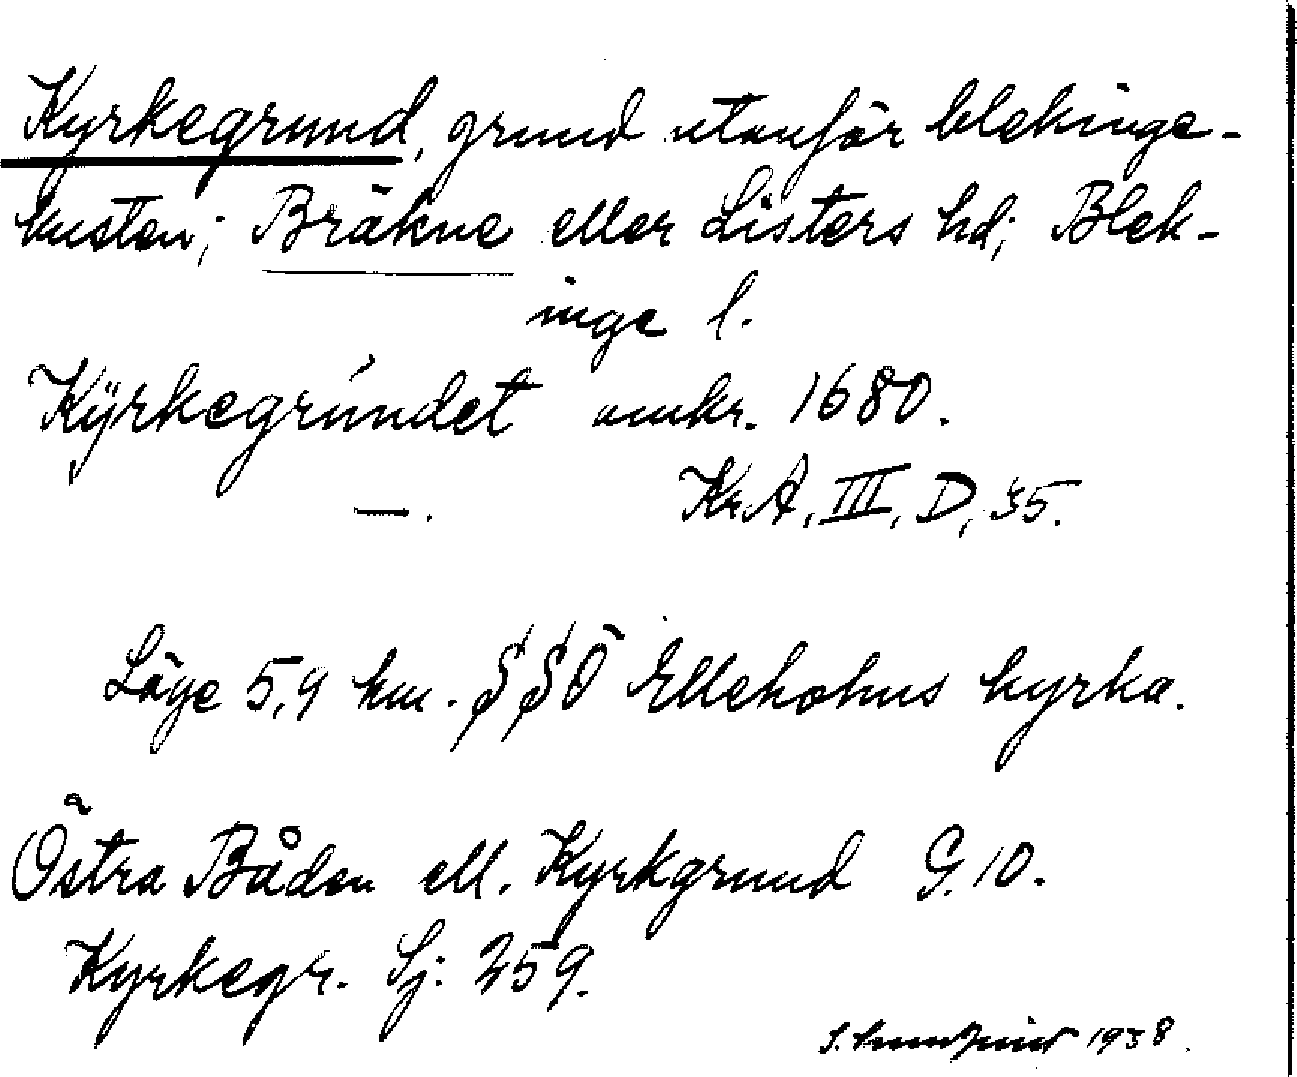 Kyrkegrund, grund utanför blekinge-
kusten; Bräkne eller Listers hd; Blek-
inge l.
Kÿrkegrúndet omkr. 1680.
—. Kr.A, III, D, 35.
Läge 5,9 km. SSÖ Elleholms kyrka.
Östra Båden ell. Kyrkgrund G. 10.
Kyrkegr. Sj: 259.
1938.